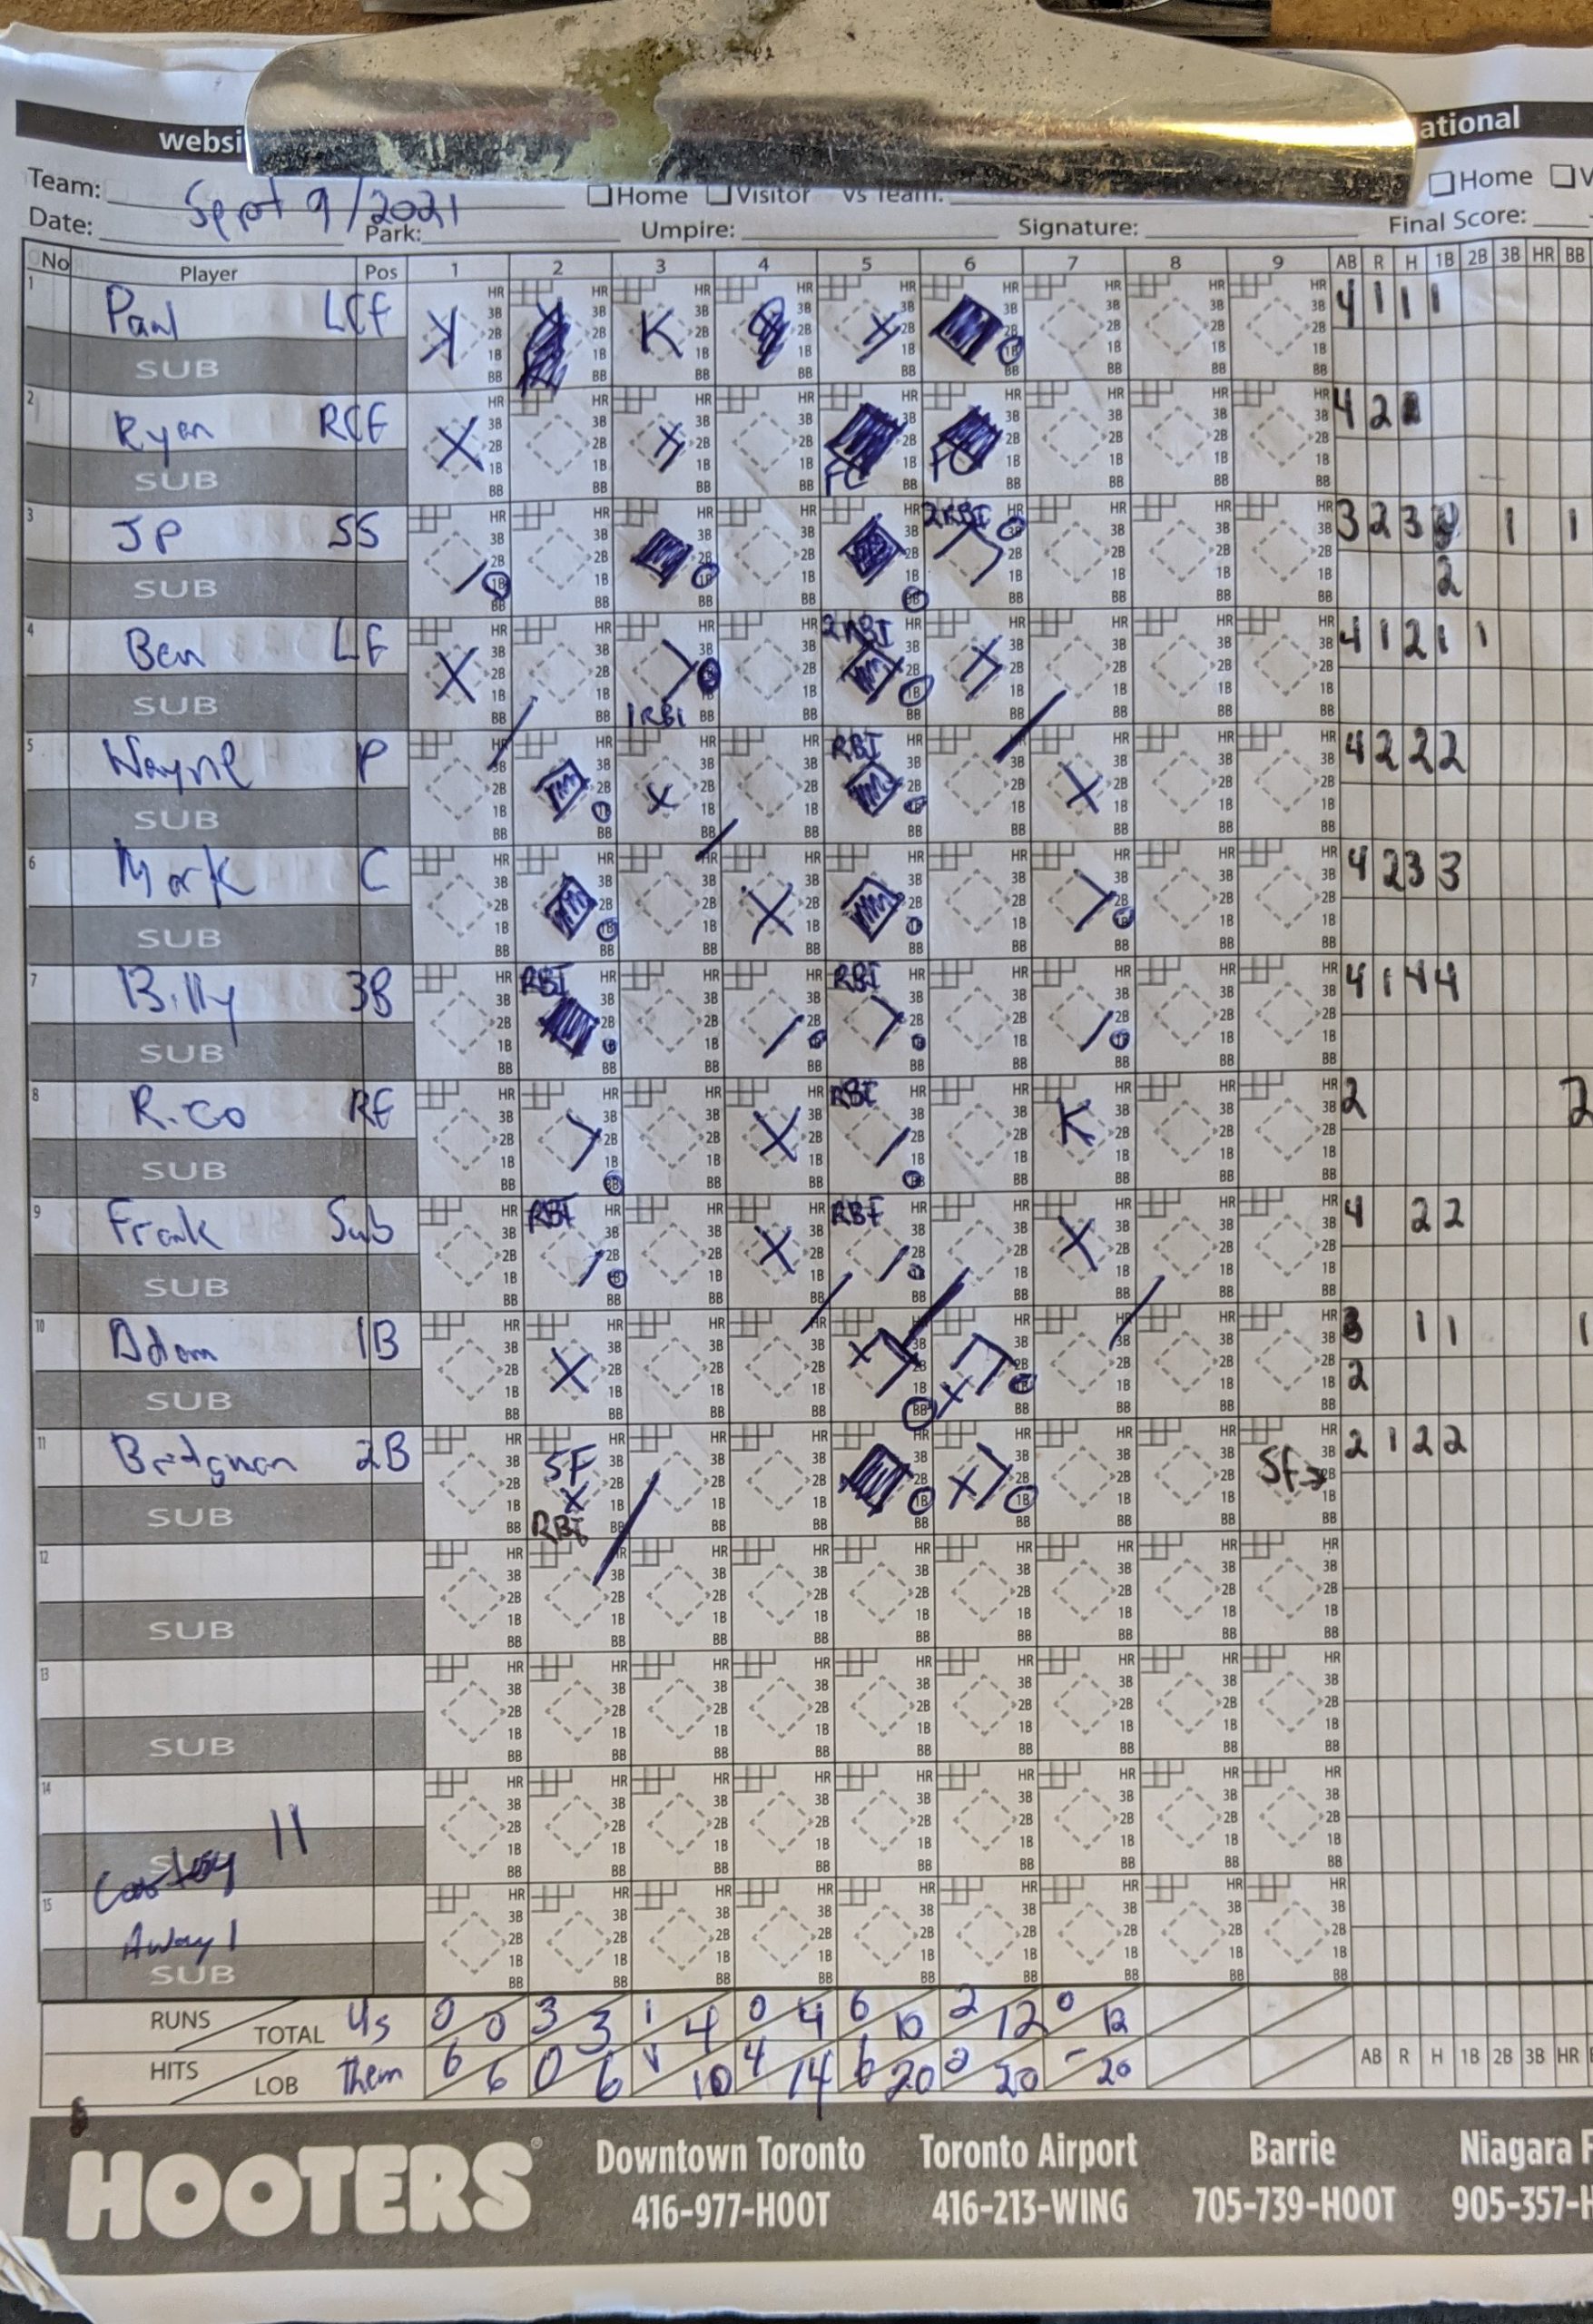 websi
ational
Team: □Home □Visitor vs Team: □Home □V
Sept 9/2021
Date: Park: Umpire: Signature: Final Score:
No Player Pos 1 2 3 4 5 6 7 8 9 AB R H 1B 2B 3B HR BB
1 Paul LCF K K 4 1 1 1
SUB
2 Ryan RCF X FC FC 4 2
SUB
3 JP SS 2RBI 3 2 3 1 1
SUB 2
4 Ben LF X 1RBI 2RBI 4 1 2 1 1
SUB
5 Wayne P X RBI X 4 2 2 2
SUB
6 Mark C X 4 2 3 3
SUB
7 Billy 3B RBI RBI 4 1 4 4
SUB
8 Rico RF X RBI K 2 2
SUB
9 Frank Sub RBI X RBI X 4 2 2
SUB
10 Adam 1B X X X 1 1 1
SUB 2
11 Bridgman 2B SF X RBI X SF→ 2 1 2 2
SUB
12
SUB
13
SUB
14
11
SUB
15
Away 1
SUB
RUNS TOTAL Us 0/0 3/3 1/4 0/4 6/10 2/12 0/12
HITS LOB Them 6/6 0/6 /10 4/14 6/20 0/20 -/20 AB R H 1B 2B 3B HR
HOOTERS
Downtown Toronto Toronto Airport Barrie Niagara F
416-977-HOOT 416-213-WING 705-739-HOOT 905-357-H